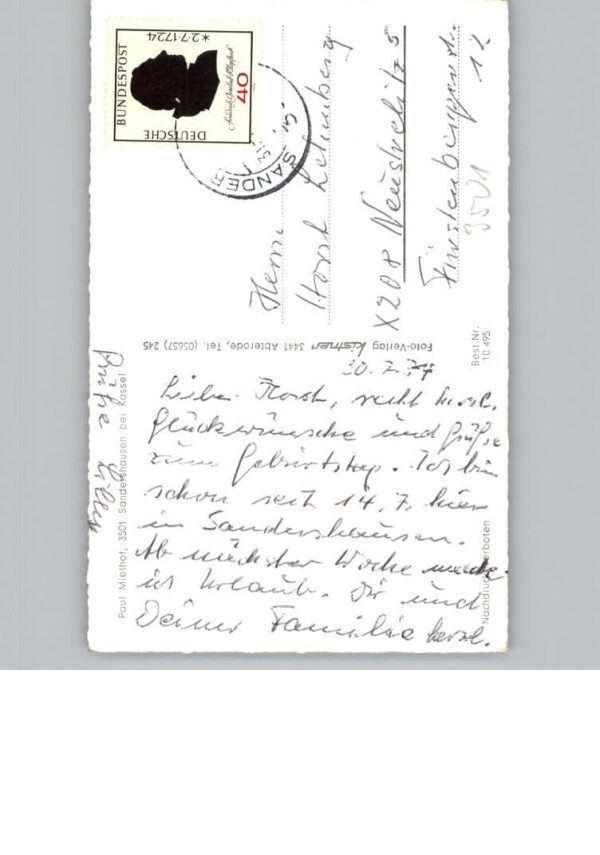 30.7.74
Lieber Horst, recht herzl.
Glückwünsche und Grüße
zum Geburtstag. Ich bin
schon seit 14.7. hier
in Sandershausen.
Ab nächster Woche mache
ich Urlaub. Dir und
Deiner Familie herzl.
Grüße
Herrn
Horst
X208 Neustrelitz 5
Fürstenbergerstr.
12
3501
DEUTSCHE
BUNDESPOST
*2·7·1724
Friedrich Gottlieb Klopstock
40
SANDER
Foto-Verlag kistner 3441 Abterode, Tel. (05657) 245
Best.Nr.
10 495
Paul Miethof, 3501 Sandershausen bei Kassel
Nachdruck verboten